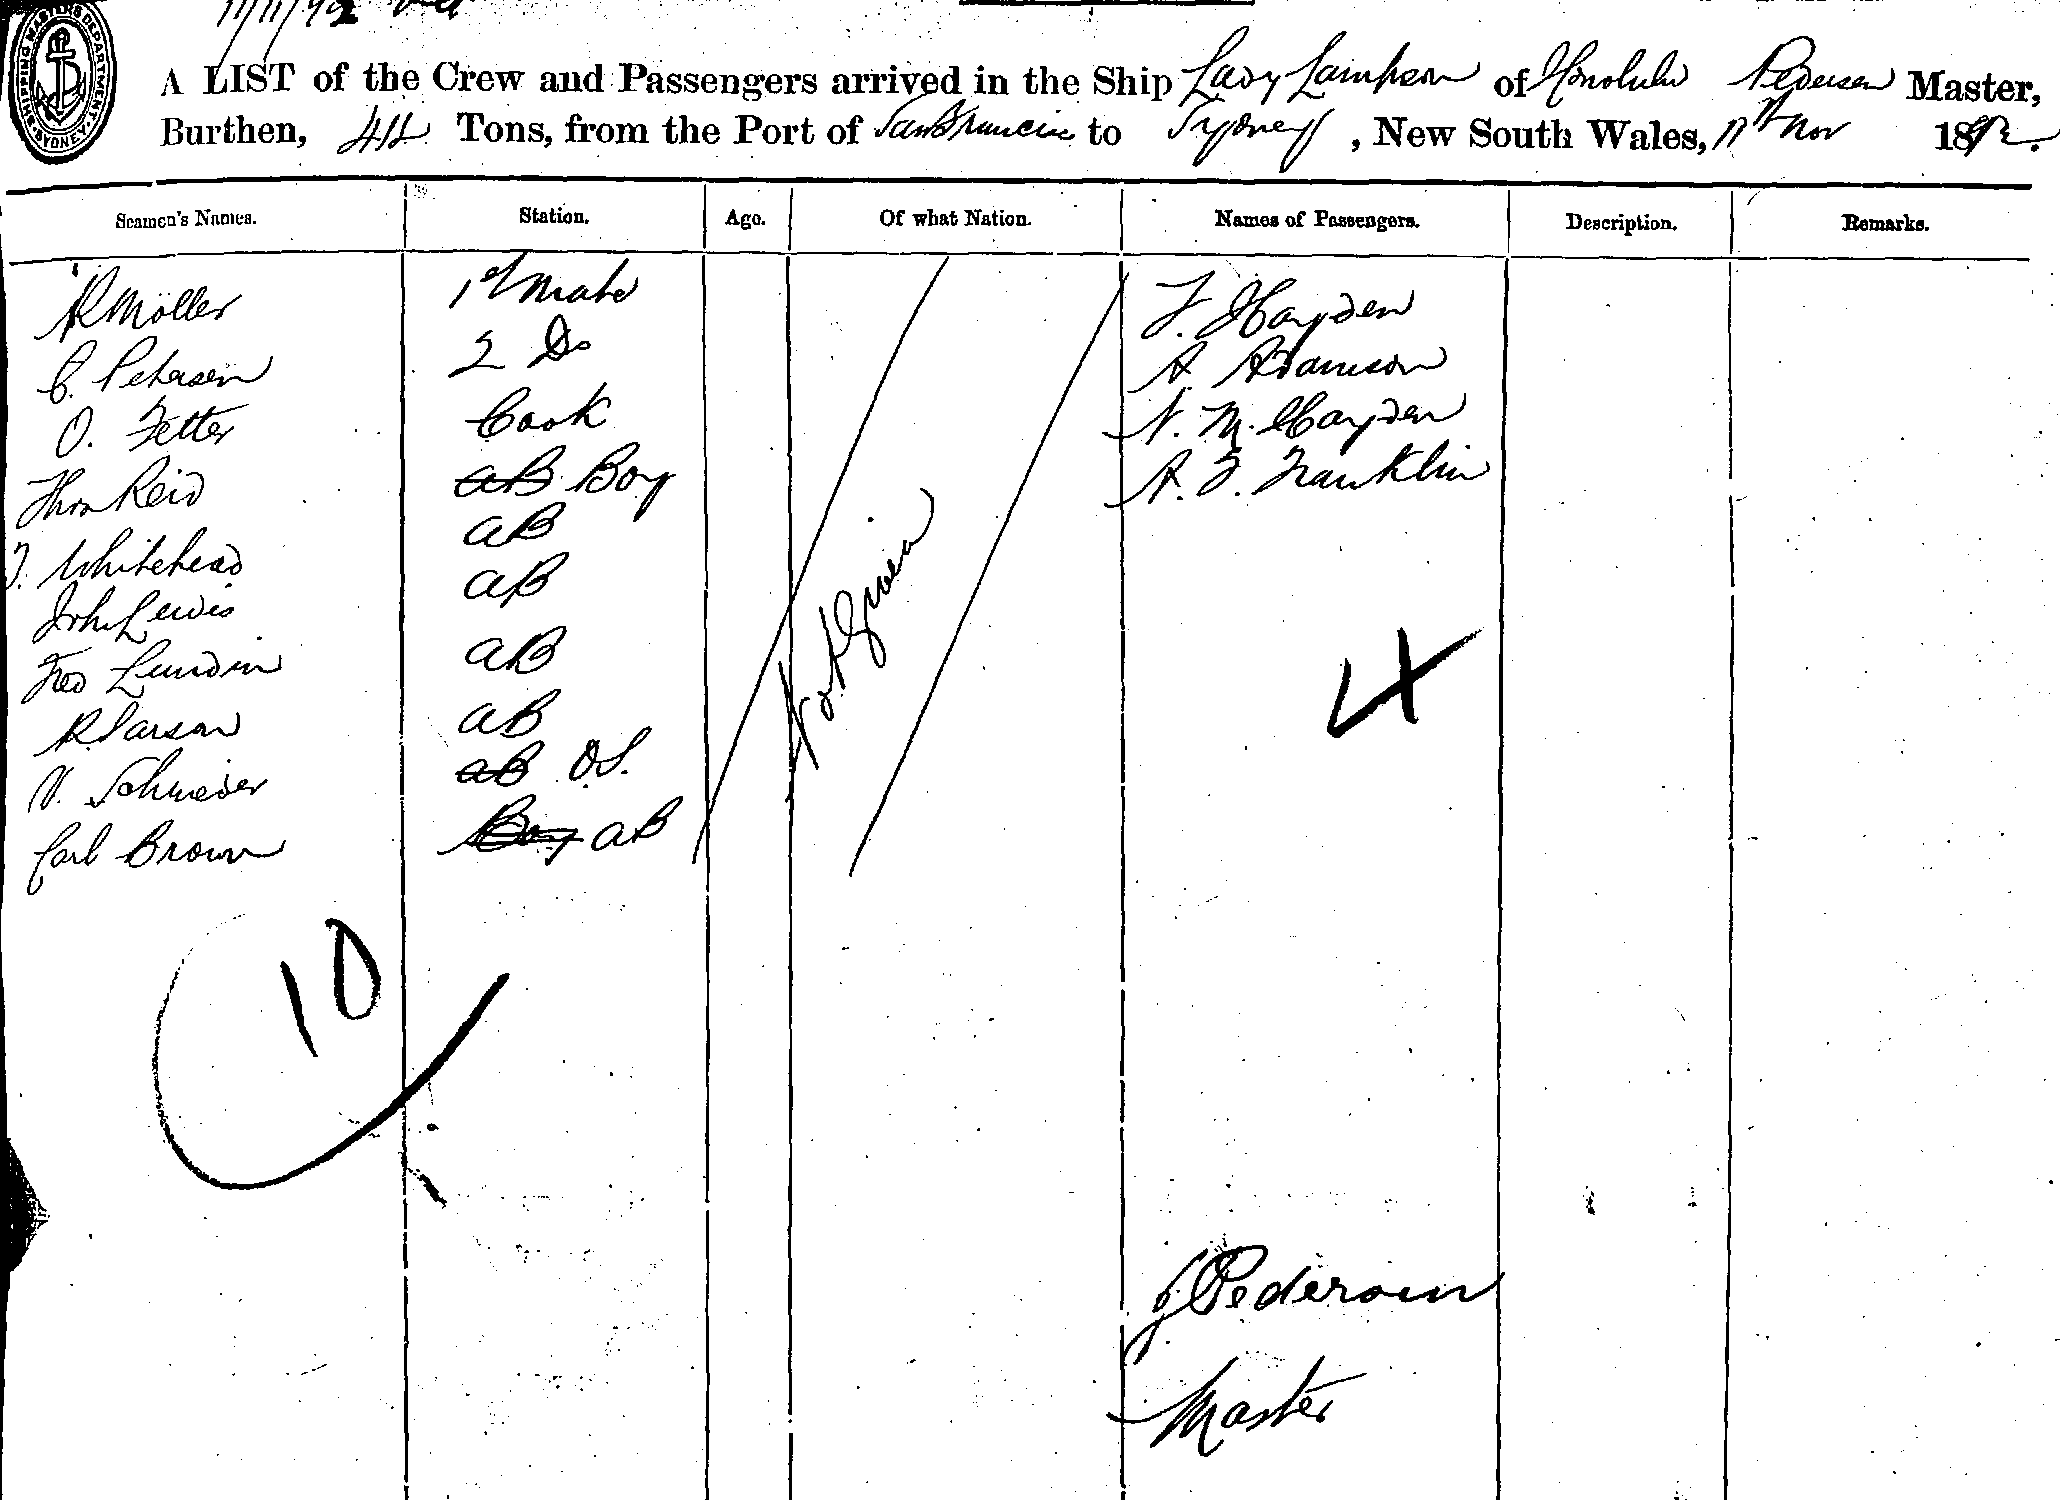 11/11/92
A LIST of the Crew and Passengers arrived in the Ship Lady Lampson of Honolulu Pedersen Master,
Burthen, 411 Tons, from the Port of San Francisco to Sydney, New South Wales, 11th Nov 1892.
Seamen's Names. Station. Age. Of what Nation. Names of Passengers. Description. Remarks.
R Möller 1st Mate F. Hayden
C. Petersen 2 Do A. Adamson
O. Fetter Cook N. M. Hayden
Thos Reid AB Boy A. F. Franklin
J. Whitehead AB
John Lewis AB
Fred Lundin AB
R. Larson AB
V. Schneider AB O.S.
Carl Brown Boy AB
Not Given
4
10
Pedersen
Master